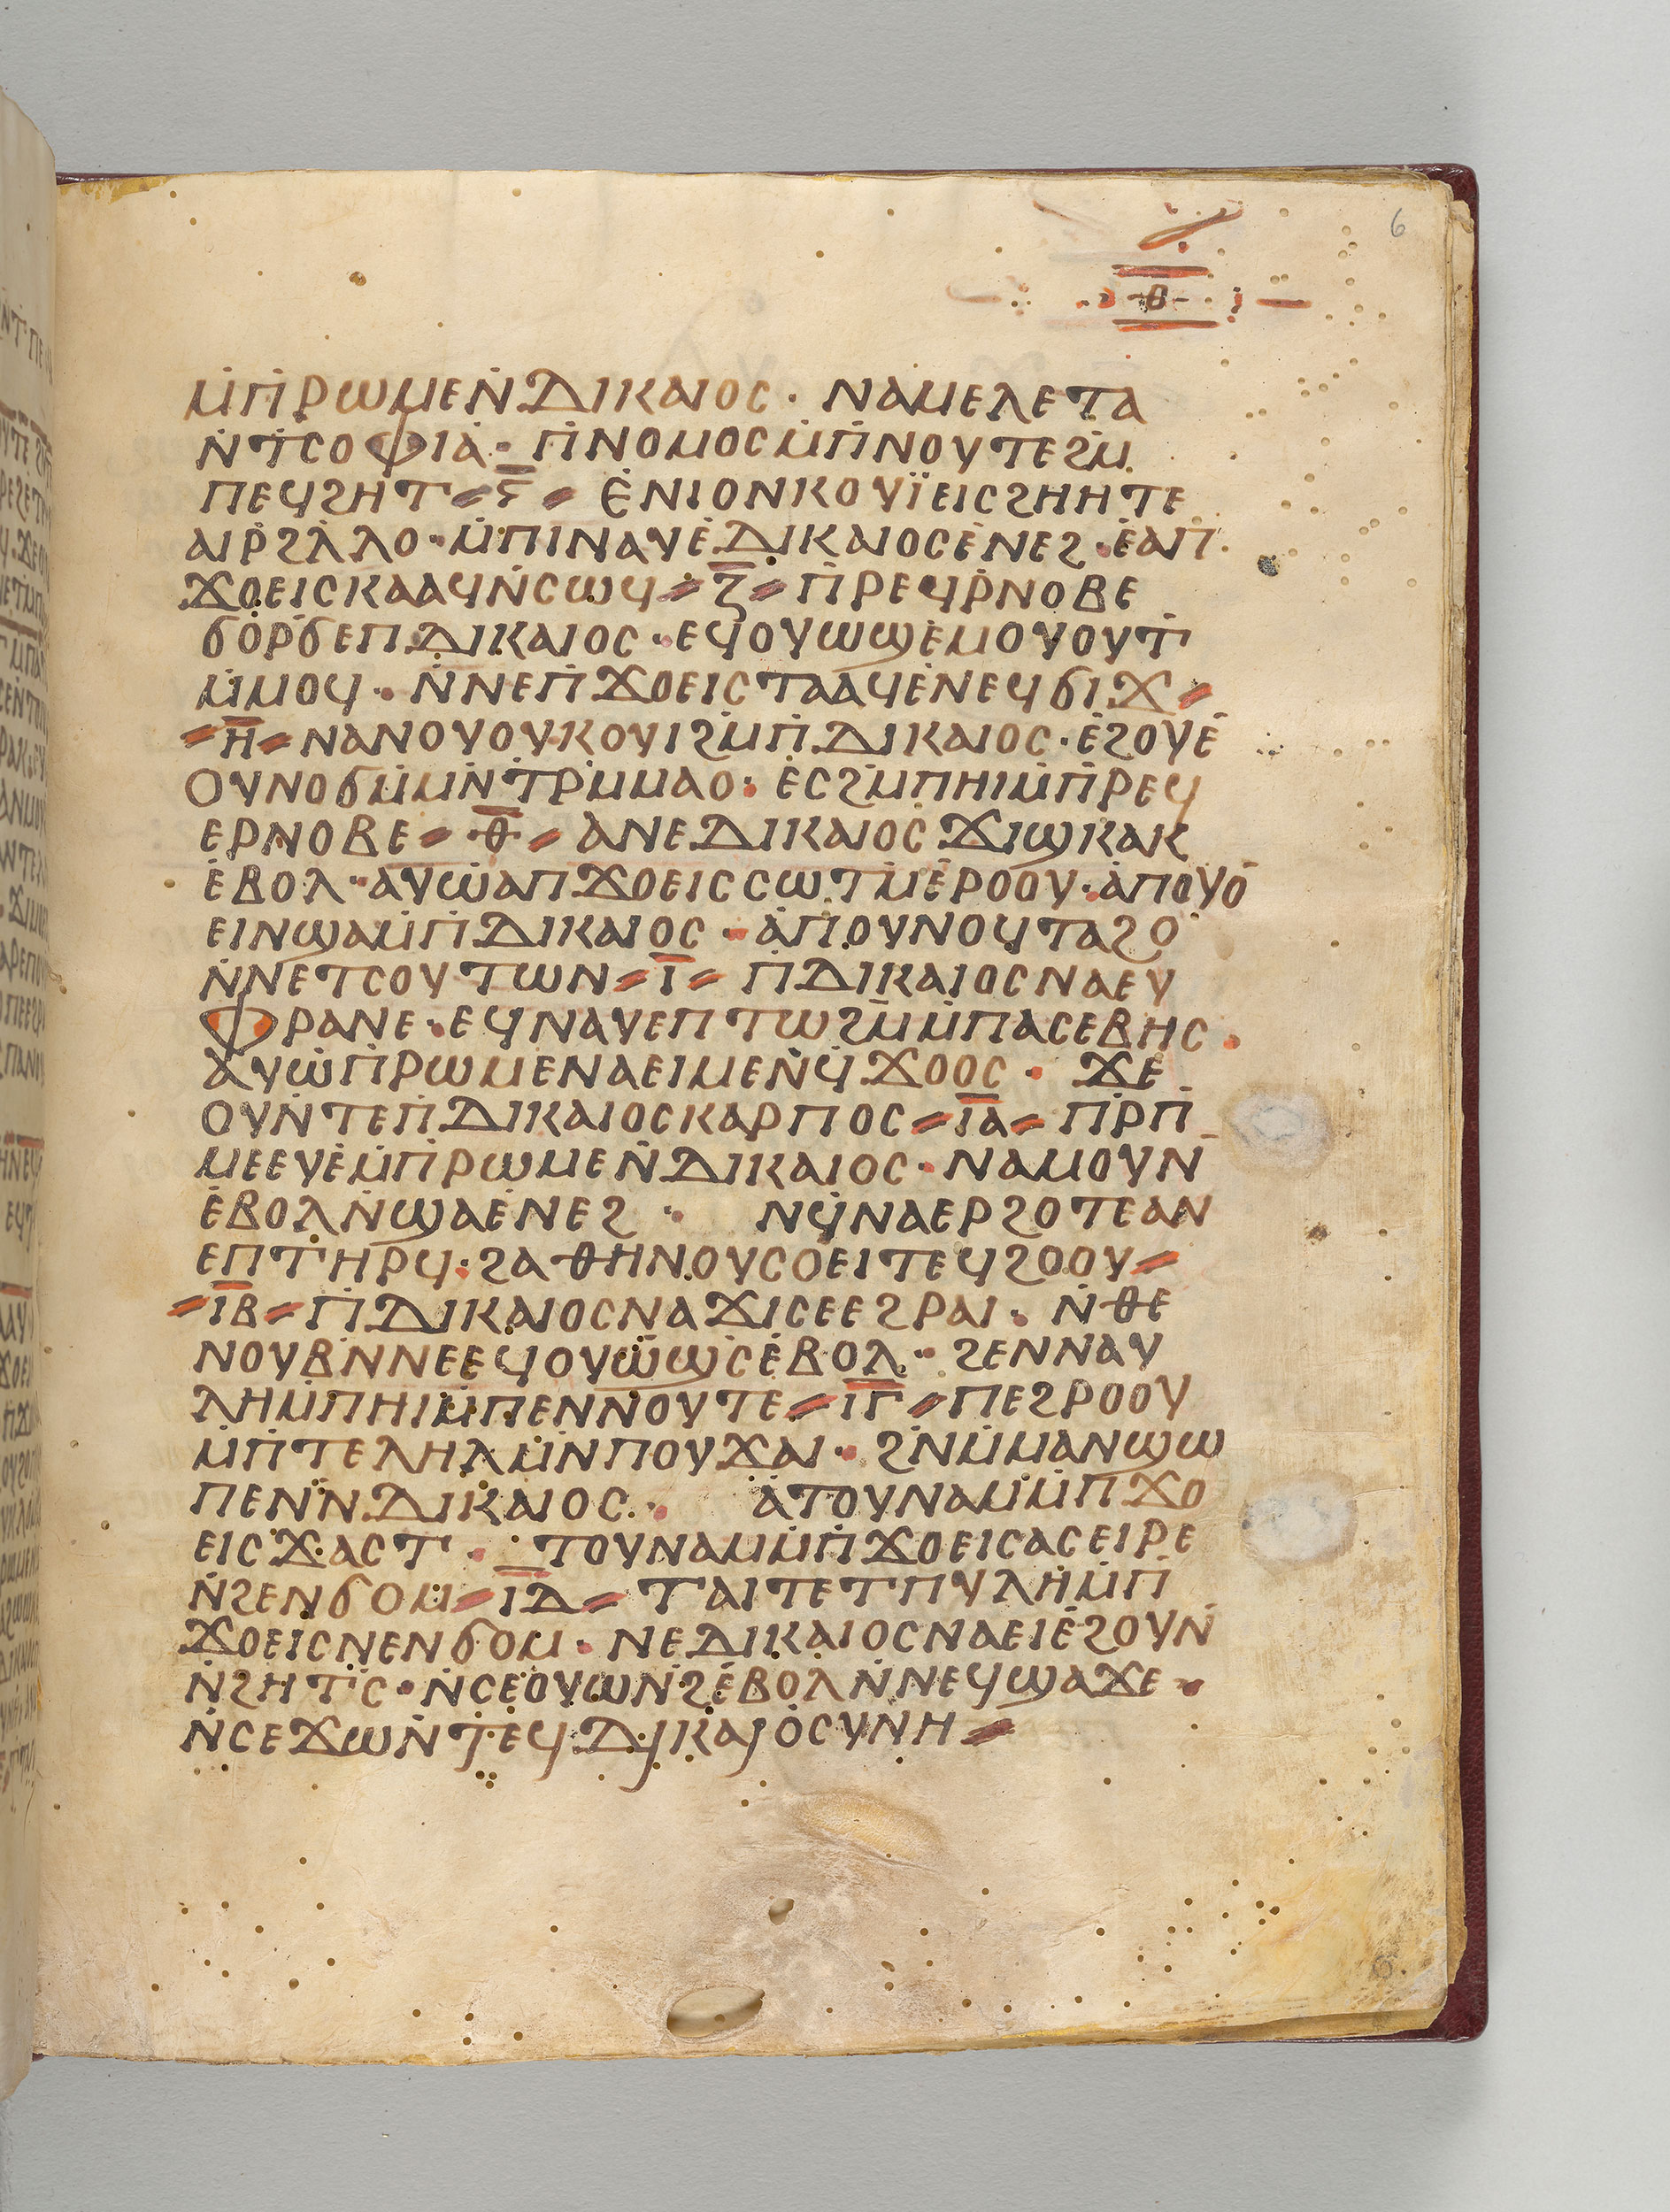 6
-ⲑ-
ⲙ̇ⲡ̇ⲣⲱⲙⲉⲛ̇ⲇⲓⲕⲁⲓⲟⲥ · ⲛⲁⲙⲉⲗⲉⲧⲁ
ⲛ̇ⲧ̇ⲥⲟⲫⲓⲁ̇ · ⲡ̇ⲛⲟⲙⲟⲥⲙ̇ⲡ̇ⲛⲟⲩⲧⲉϩⲙ̇
ⲡⲉϥϩⲏⲧ ⸗ ⲋ̅ ⸗ ⲉ̇ⲛⲓⲟⲛⲕⲟⲩⲓ̈ⲉⲓⲥϩⲏⲏⲧⲉ
ⲁⲓⲣ̇ϩⲗ̇ⲗⲟ · ⲙ̇ⲡⲓⲛⲁⲩⲉ̇ⲇⲓⲕⲁⲓⲟⲥⲉ̇ⲛⲉϩ · ⲉ̇ⲁⲡ
ϫⲟⲉⲓⲥⲕⲁⲁϥⲛ̇ⲥⲱϥ ⸗ ⲍ̅ ⸗ ⲡ̇ⲣⲉϥⲣ̇ⲛⲟⲃⲉ
ϭⲟ̇ⲣ̇ϭⲉⲡⲇⲓⲕⲁⲓⲟⲥ · ⲉϥⲟⲩⲱϣⲉ̇ⲙⲟⲩⲟⲩⲧ
ⲙ̇ⲙⲟϥ · ⲛ̇ⲛⲉⲡ̇ϫⲟⲉⲓⲥⲧⲁⲁϥⲉ̇ⲛⲉϥϭⲓϫ ⸗
⸗ ⲏ̅ ⸗ ⲛⲁⲛⲟⲩⲟⲩⲕⲟⲩⲓϩⲙ̇ⲡ̇ⲇⲓⲕⲁⲓⲟⲥ · ⲉ̇ϩⲟⲩⲉ̇
ⲟⲩⲛⲟϭⲙ̇ⲙⲛ̇ⲧⲣ̇ⲙⲙⲁⲟ · ⲉ̇ⲥϩⲙ̇ⲡⲏⲓⲙ̇ⲡ̇ⲣⲉϥ
ⲉⲣⲛⲟⲃⲉ ⸗ ⲑ̅ ⸗ ⲁ̇ⲛⲉⲇⲓⲕⲁⲓⲟⲥϫⲓϣⲕⲁⲕ
ⲉ̇ⲃⲟⲗ · ⲁⲩⲱ̇ⲁⲡϫⲟⲉⲓⲥⲥⲱⲧⲙ̇ⲉ̇ⲣⲟⲟⲩ · ⲁ̇ⲡⲟⲩⲟ̇
ⲉⲓⲛϣⲁⲙ̇ⲡ̇ⲇⲓⲕⲁⲓⲟⲥ · ⲁ̇ⲡ̇ⲟⲩⲛⲟϥⲧⲁϩⲟ
ⲛ̇ⲛⲉⲧⲥⲟⲩⲧⲱⲛ ⸗ ⲓ̅ ⸗ ⲡ̇ⲇⲓⲕⲁⲓⲟⲥⲛⲁⲉⲩ
ⲫⲣⲁⲛⲉ · ⲉϥⲛⲁⲩⲉⲡⲧⲱϩⲙ̇ⲙ̇ⲡⲁⲥⲉⲃⲏⲥ ·
ⲁⲩⲱ̇ⲡ̇ⲣⲱⲙⲉⲛⲁⲉⲓⲙⲉⲛ̇ϥ̇ϫⲟⲟⲥ · ϫⲉ
ⲟⲩⲛ̇ⲧⲉⲡ̇ⲇⲓⲕⲁⲓⲟⲥⲕⲁⲣⲡⲟⲥ ⸗ ⲓ̅ⲁ̅ ⸗ ⲡ̇ⲣ̇ⲡ̇
ⲙⲉⲉⲩⲉ̇ⲙ̇ⲡ̇ⲣⲱⲙⲉⲛ̇ⲇⲓⲕⲁⲓⲟⲥ · ⲛⲁⲙⲟⲩⲛ
ⲉ̇ⲃⲟⲗⲛ̇ϣⲁⲉ̇ⲛⲉϩ · ⲛϥ̇ⲛⲁⲉⲣϩⲟⲧⲉⲁⲛ
ⲉⲡⲧⲏⲣϥ · ϩⲁⲑⲏⲛⲟⲩⲥⲟ̇ⲉⲓⲧⲉϥϩⲟⲟⲩ ⸗
⸗ ⲓ̅ⲃ̅ ⸗ ⲡ̇ⲇⲓⲕⲁⲓⲟⲥⲛⲁϫⲓⲥⲉⲉϩⲣⲁⲓ · ⲛ̇ⲑⲉ
ⲛⲟⲩⲃ̇ⲛ̇ⲛⲉⲉϥⲟⲩⲱ̈ϣ̇ⲥ̇ⲉ̇ⲃⲟⲗ · ϩⲉⲛⲛⲁⲩ
ⲗⲏⲙ̇ⲡⲏⲓⲙ̇ⲡⲉⲛⲛⲟⲩⲧⲉ ⸗ ⲓ̅ⲅ̅ ⸗ ⲡⲉϩⲣⲟⲟⲩ
ⲙ̇ⲡ̇ⲧⲉⲗⲏⲗⲙ̇ⲛ̇ⲡⲟⲩϫⲁⲓ · ϩⲛ̇ⲙ̇ⲙⲁⲛϣⲱ
ⲡⲉⲛ̇ⲛ̇ⲇⲓⲕⲁⲓⲟⲥ · ⲁ̇ⲧⲟⲩⲛⲁⲙⲙ̇ⲡ̇ϫⲟ
ⲉⲓⲥϫⲁⲥⲧ · ⲧⲟⲩⲛⲁⲙⲙ̇ⲡ̇ϫⲟⲉⲓⲥⲁⲥⲉⲓⲣⲉ
ⲛ̇ϩⲉⲛϭⲟⲙ ⸗ ⲓ̅ⲇ̅ ⸗ ⲧⲁⲓⲧⲉⲧⲡⲩⲗⲏⲙ̇ⲡ̇
ϫⲟⲉⲓⲥⲛⲉⲛϭⲟⲙ · ⲛⲉⲇⲓⲕⲁⲓⲟⲥⲛⲁⲉⲓⲉ̇ϩⲟⲩⲛ̇
ⲛ̇ϩⲏⲧⲥ̇ · ⲛ̇ⲥⲉⲟⲩⲱⲛ̇ϩⲉ̇ⲃⲟⲗⲛ̇ⲛⲉϥϣⲁϫⲉ ·
ⲛ̇ⲥⲉϫⲱⲛ̇ⲧⲉϥⲇⲓⲕⲁⲓⲟ̇ⲥⲩⲛⲏ ⸗